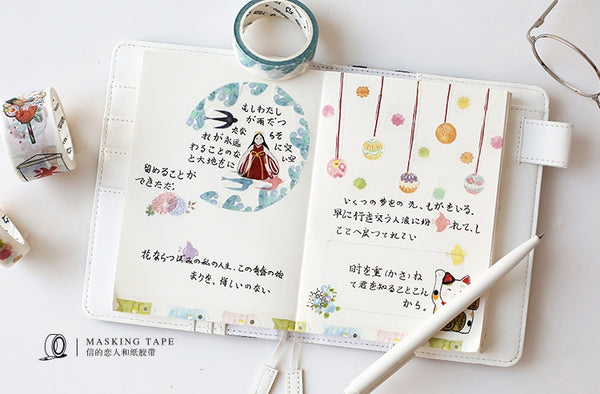 むしわたし
が雨だつ
たなら
れが永遠
わることのな
と大地きに
留めることが
できただ.
花ならつぼみの私の人生、この青春の始
まりを、悔しいのない
いくつの歩をの 先、もがきいる.
早に行き交う人波に紛 れて、し
ここへ戻ってれてい
時を重(かさ)ね
て君を知ることこん
から。
MASKING TAPE
信的恋人和纸胶带